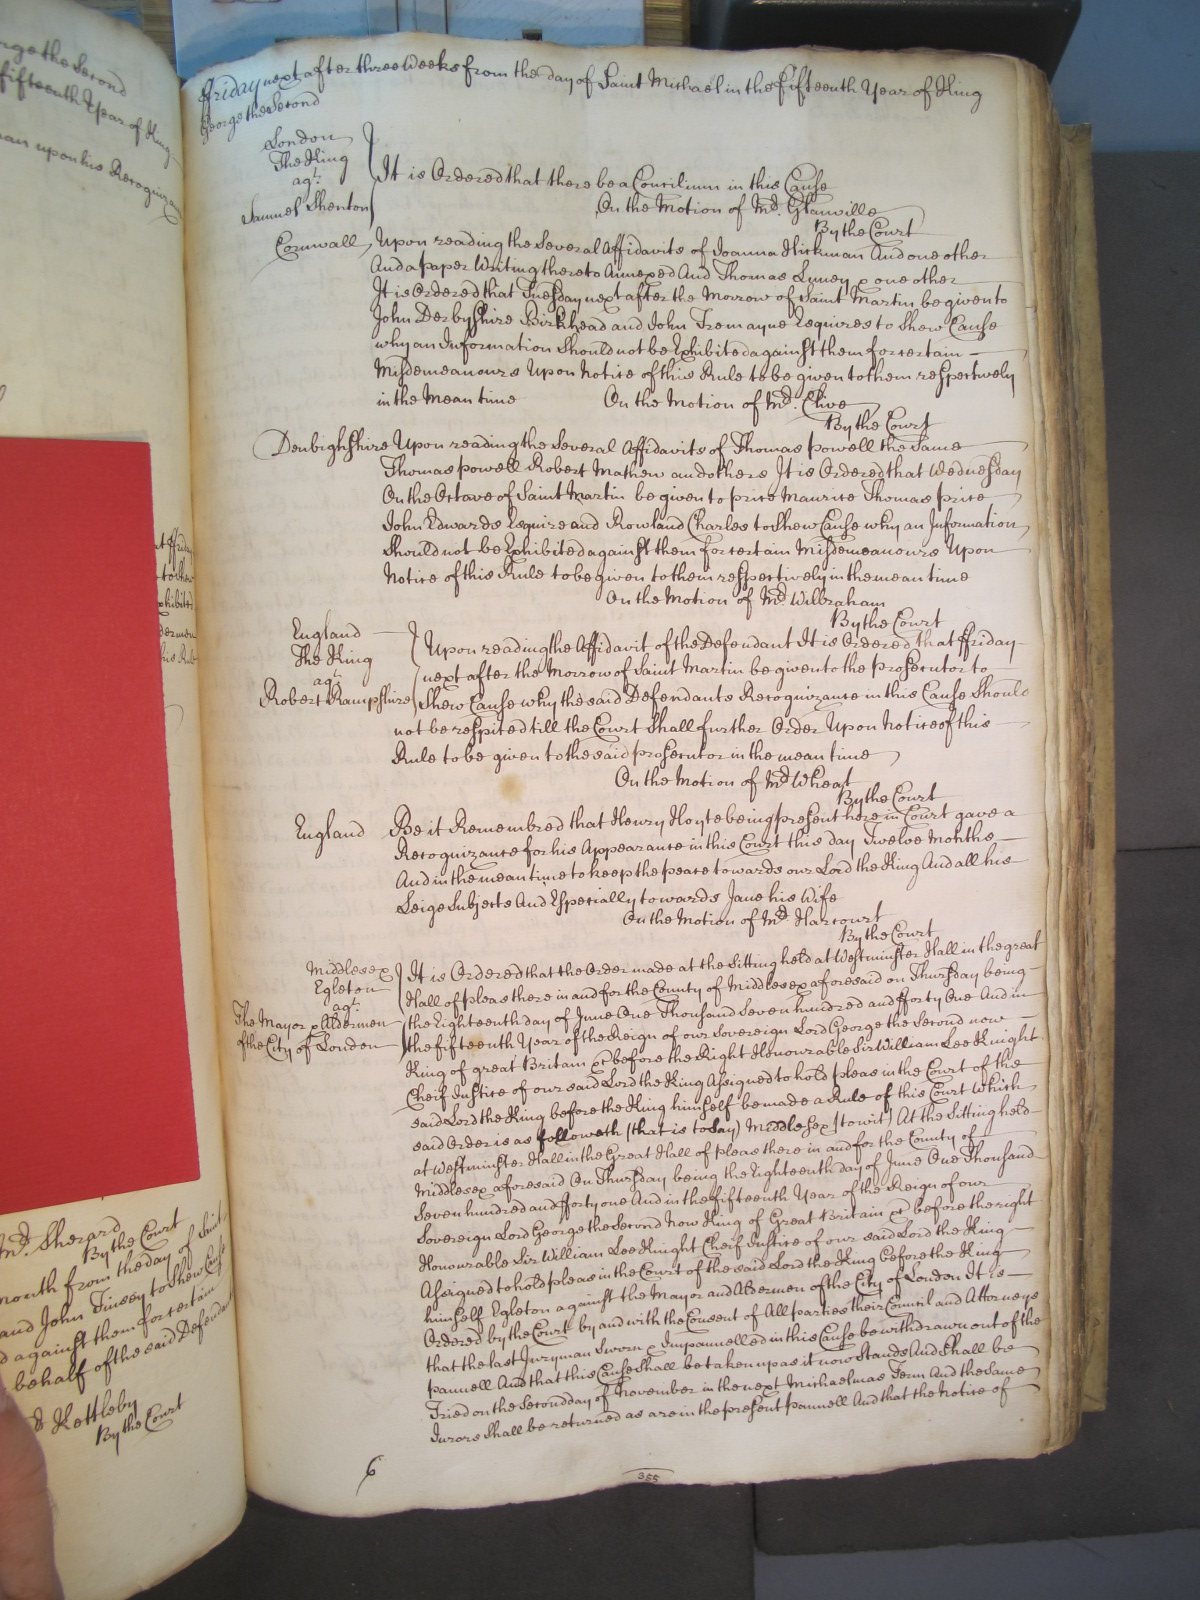 Friday next after three Weeks from the day of Saint Michael in the fifteenth Year of King
George the Second
London
The King
agt.
Samuel Shenton
It is Ordered that there be a Concilium in this Cause
On the Motion of Mr. Glanville
By the Court
Cornwall Upon reading the Several Affidavits of Joanna Hickman And one other
And a paper Writing thereto Annexed And Thomas Luney & one other
It is Ordered that Tuesday next after the Morrow of Saint Martin be given to
John Derbyshire Birkhead and John Tremayne Esquires to Shew Cause
why an Information Should not be Exhibited against them for certain
Misdemeanours Upon Notice of this Rule to be given to them respectively
in the Mean time On the Motion of Mr. Clive
By the Court
Denbighshire Upon reading the Several Affidavits of Thomas Powell the Same
Thomas Powell Robert Mathew and others It is Ordered that Wednesday
On the Octave of Saint Martin be given to Price Maurice Thomas Price
John Edwards Esquire and Rowland Charles to Shew Cause why an Information
Should not be Exhibited against them for certain Misdemeanours Upon
Notice of this Rule to be given to them respectively in the mean time
On the Motion of Mr. Wilbraham
By the Court
England
The King
agt.
Robert Rampshire
Upon reading the Affidavit of the Defendant It is Ordered that Friday
next after the Morrow of Saint Martin be given to the Prosecutor to
Shew Cause why the said Defendants Recognizance in this Cause Should
not be respited till the Court Shall further Order Upon Notice of this
Rule to be given to the said prosecutor in the mean time
On the Motion of Mr. Wheat
By the Court
England Be it Remembred that Henry Hoyte being present here in Court gave a
Recognizance for his Appearance in this Court this day Twelve Months
And in the mean time to keep the peace towards our Lord the King And all his
Leige Subjects And Especially towards Jane his Wife
On the Motion of Mr. Harcourt
By the Court
Middlesex
Egleton
agt.
The Mayor & Aldermen
of the City of London
It is Ordered that the Order made at the Sitting held at Westminster Hall in the great
Hall of pleas there in and for the County of Middlesex aforesaid on Thursday being
the Eighteenth day of June One Thousand Seven hundred and fforty One And in
the fifteenth Year of the Reign of our Sovereign Lord George the Second now
King of great Britain &c before the Right Honourable Sir William Lee Knight
Cheif Justice of our said Lord the King Assigned to hold pleas in the Court of the
said Lord the King before the King himself be made a Rule of this Court Which
said Order is as followeth (that is to say) Middlesex (to wit) At the Sitting held
at Westminster Hall in the Great Hall of pleas there in and for the County of
Middlesex aforesaid On Thursday being the Eighteenth day of June One Thousand
Seven hundred and fforty one And in the fifteenth Year of the Reign of our
Sovereign Lord George the Second Now King of Great Britain &c before the right
Honourable Sir William Lee Knight Cheif Justice of our said Lord the King
Assigned to hold pleas in the Court of the said Lord the King before the King
himself Egleton against the Mayor and Aldermen of the City of London It is
Ordered by the Court by and with the Consent of All parties their Council and Attorneys
that the last Juryman Sworn & Impannelled in this Cause be withdrawn out of the
pannell And that this Cause Shall be taken up as it now Stands And Shall be
Tried on the Second day of November in the next Michaelmas Term And the Same
Jurors Shall be returned as are in the present pannell And that the Notice of
6
355
rge the Second
fifteenth Year of King
upon his Recognizan
Mr. Sherard
By the Court
month from the day of Saint
and John Tinsey to shew Cause
against them for certain
behalf of the said Defendant
Kettleby
By the Court